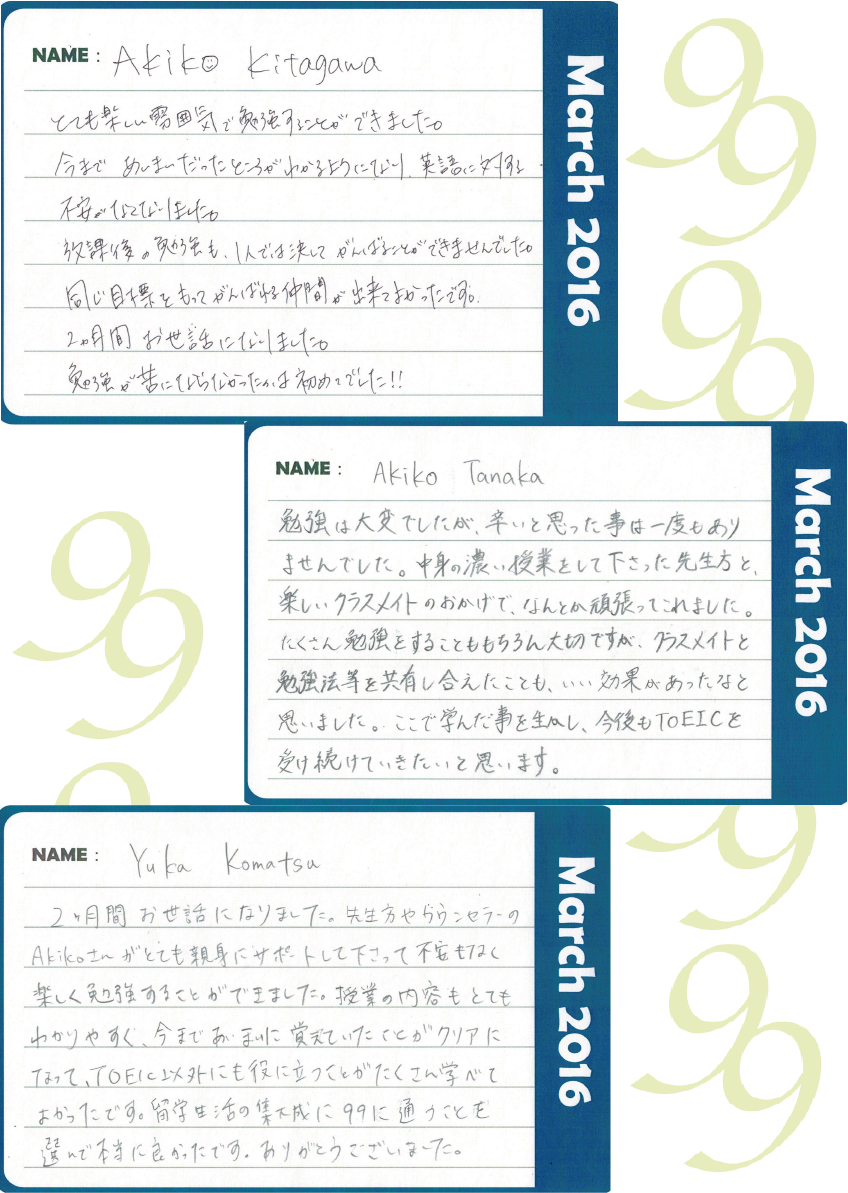 NAME: Akiko Kitagawa
とても楽しい雰囲気で勉強することができました。
今まであいまいだったところがわかるようになり、英語に対する
不安がなくなりました。
放課後の勉強も、1人では決してがんばることができませんでした。
同じ目標をもってがんばれる仲間が出来てよかったです。
2ヵ月間お世話になりました。
勉強が苦にならなかったのは初めてでした!!
March 2016
99
99
NAME: Akiko Tanaka
勉強は大変でしたが、辛いと思った事は一度もあり
ませんでした。中身の濃い授業をして下さった先生方と、
楽しいクラスメイトのおかげで、なんとか頑張ってこれました。
たくさん勉強をすることももちろん大切ですが、クラスメイトと
勉強法等を共有し合えたことも、いい効果があったなと
思いました。ここで学んだ事を生かし、今後もTOEICを
受け続けていきたいと思います。
March 2016
99
NAME: Yuka Komatsu
2ヶ月間お世話になりました。先生方やカウンセラーの
Akikoさんがとても親身にサポートして下さって不安もなく
楽しく勉強することができました。授業の内容もとても
わかりやすく、今まであいまいに覚えていたことがクリアに
なって、TOEIC以外にも役に立つことがたくさん学べて
よかったです。留学生活の集大成に99に通うことを
選んで本当に良かったです。ありがとうございました。
March 2016
99
99